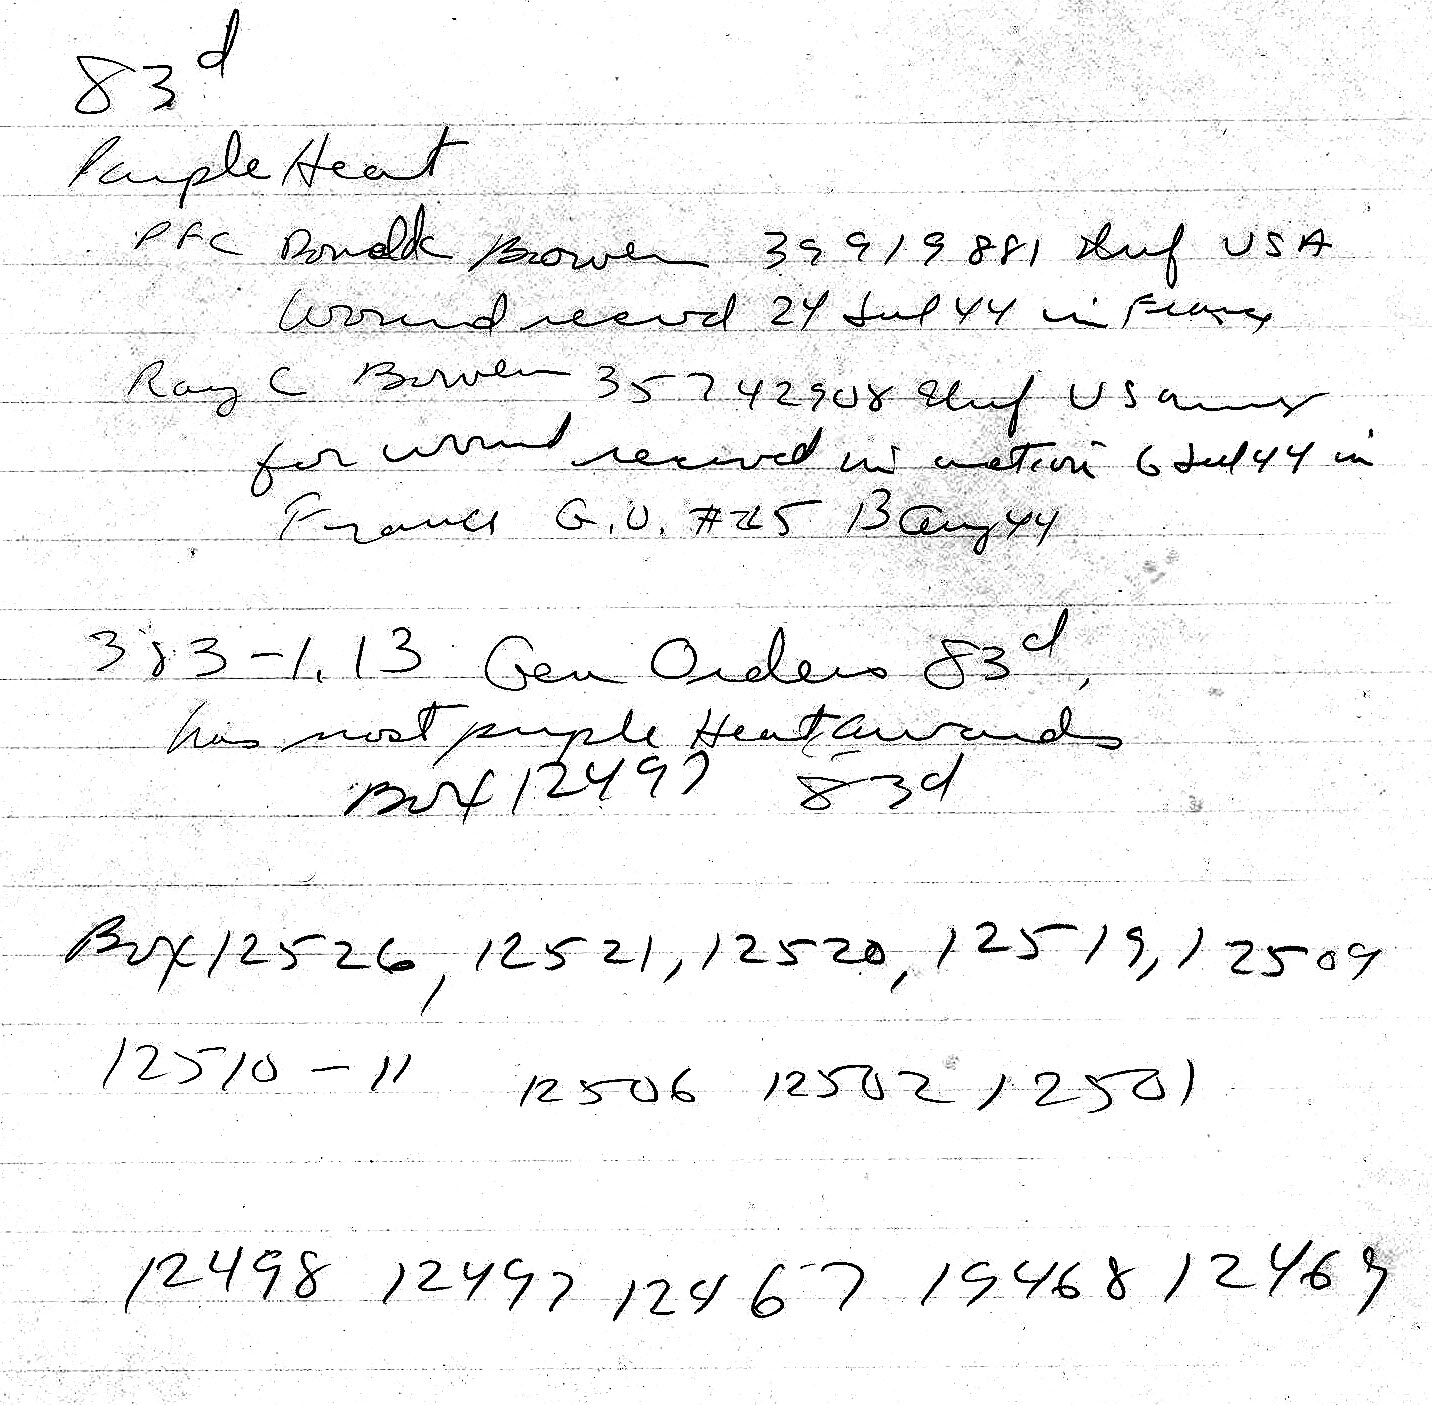 83d
Purple Heart
PFC Donald Bowen 39919881 Inf USA
Wound received 24 Jul 44 in France
Ray C Bowen 35742908 Inf US army
for wound received in action 6 Jul 44 in
France G.O. #25 13 Aug 44
383-1.13 Gen Orders 83d,
has most purple Heart awards
Box 12497 83d
Box 12526, 12521, 12520, 12519, 12509
12510-11 12506 12502, 12501
12498 12497 12467 19468 12469